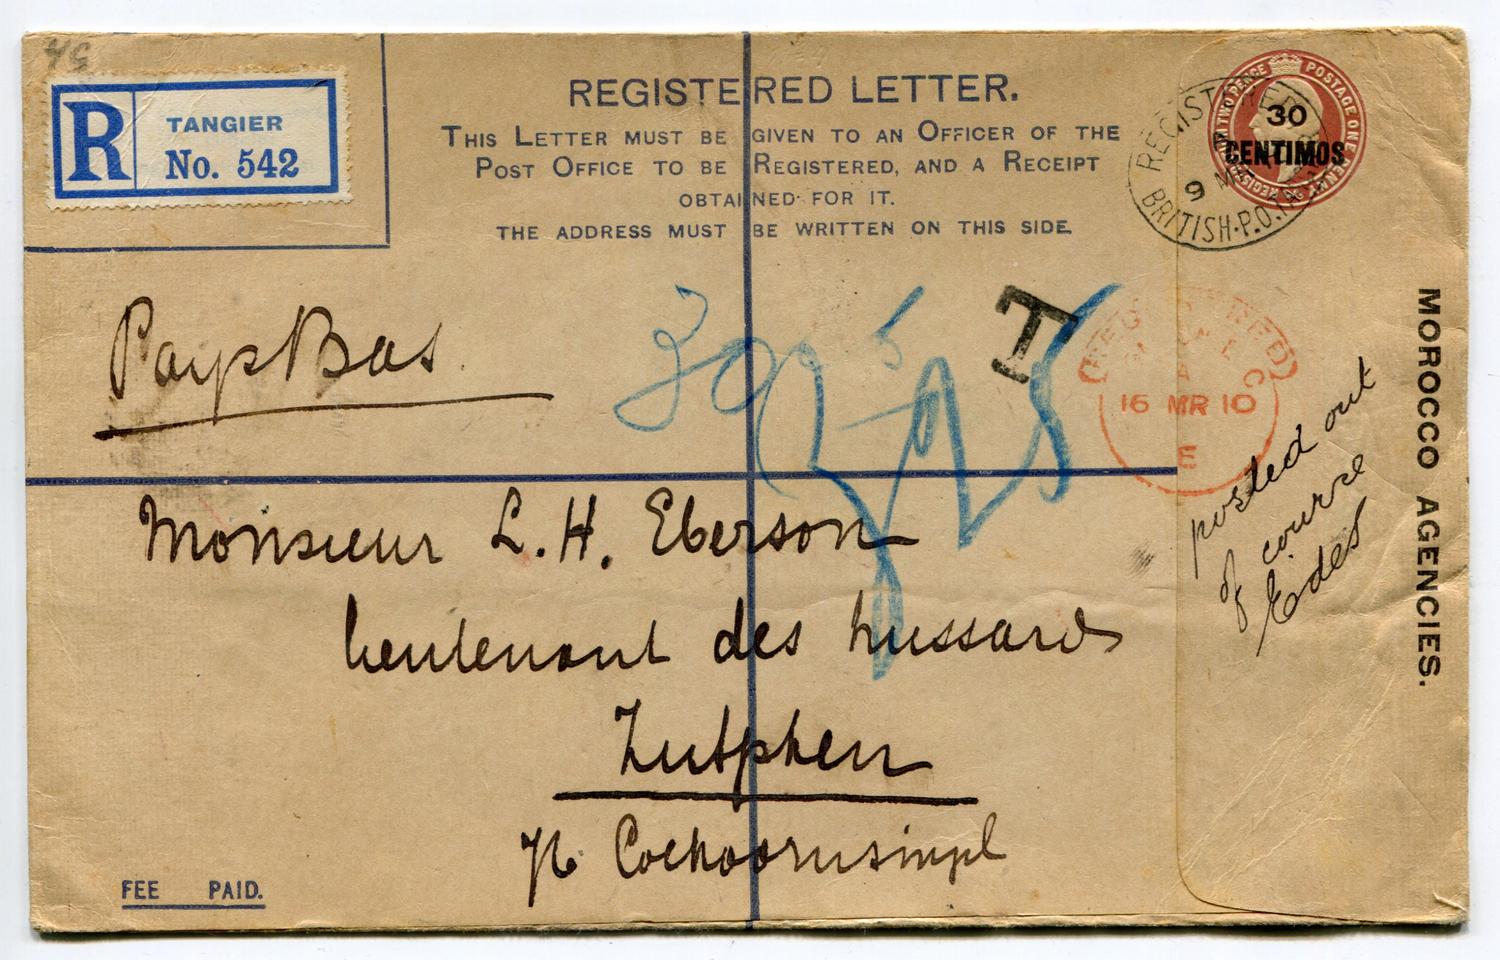 R
TANGIER
No. 542
REGISTERED LETTER.
THIS LETTER MUST BE GIVEN TO AN OFFICER OF THE
POST OFFICE TO BE REGISTERED, AND A RECEIPT
OBTAINED FOR IT.
THE ADDRESS MUST BE WRITTEN ON THIS SIDE.
30
CENTIMOS
BRITISH·P.O.
T
16 MR 10
E
MOROCCO AGENCIES.
posted out
of course
Pays Bas
Monsieur L. H. Eberson
lieutenant des hussards
Zutphen
Coehoornsingel
FEE PAID.